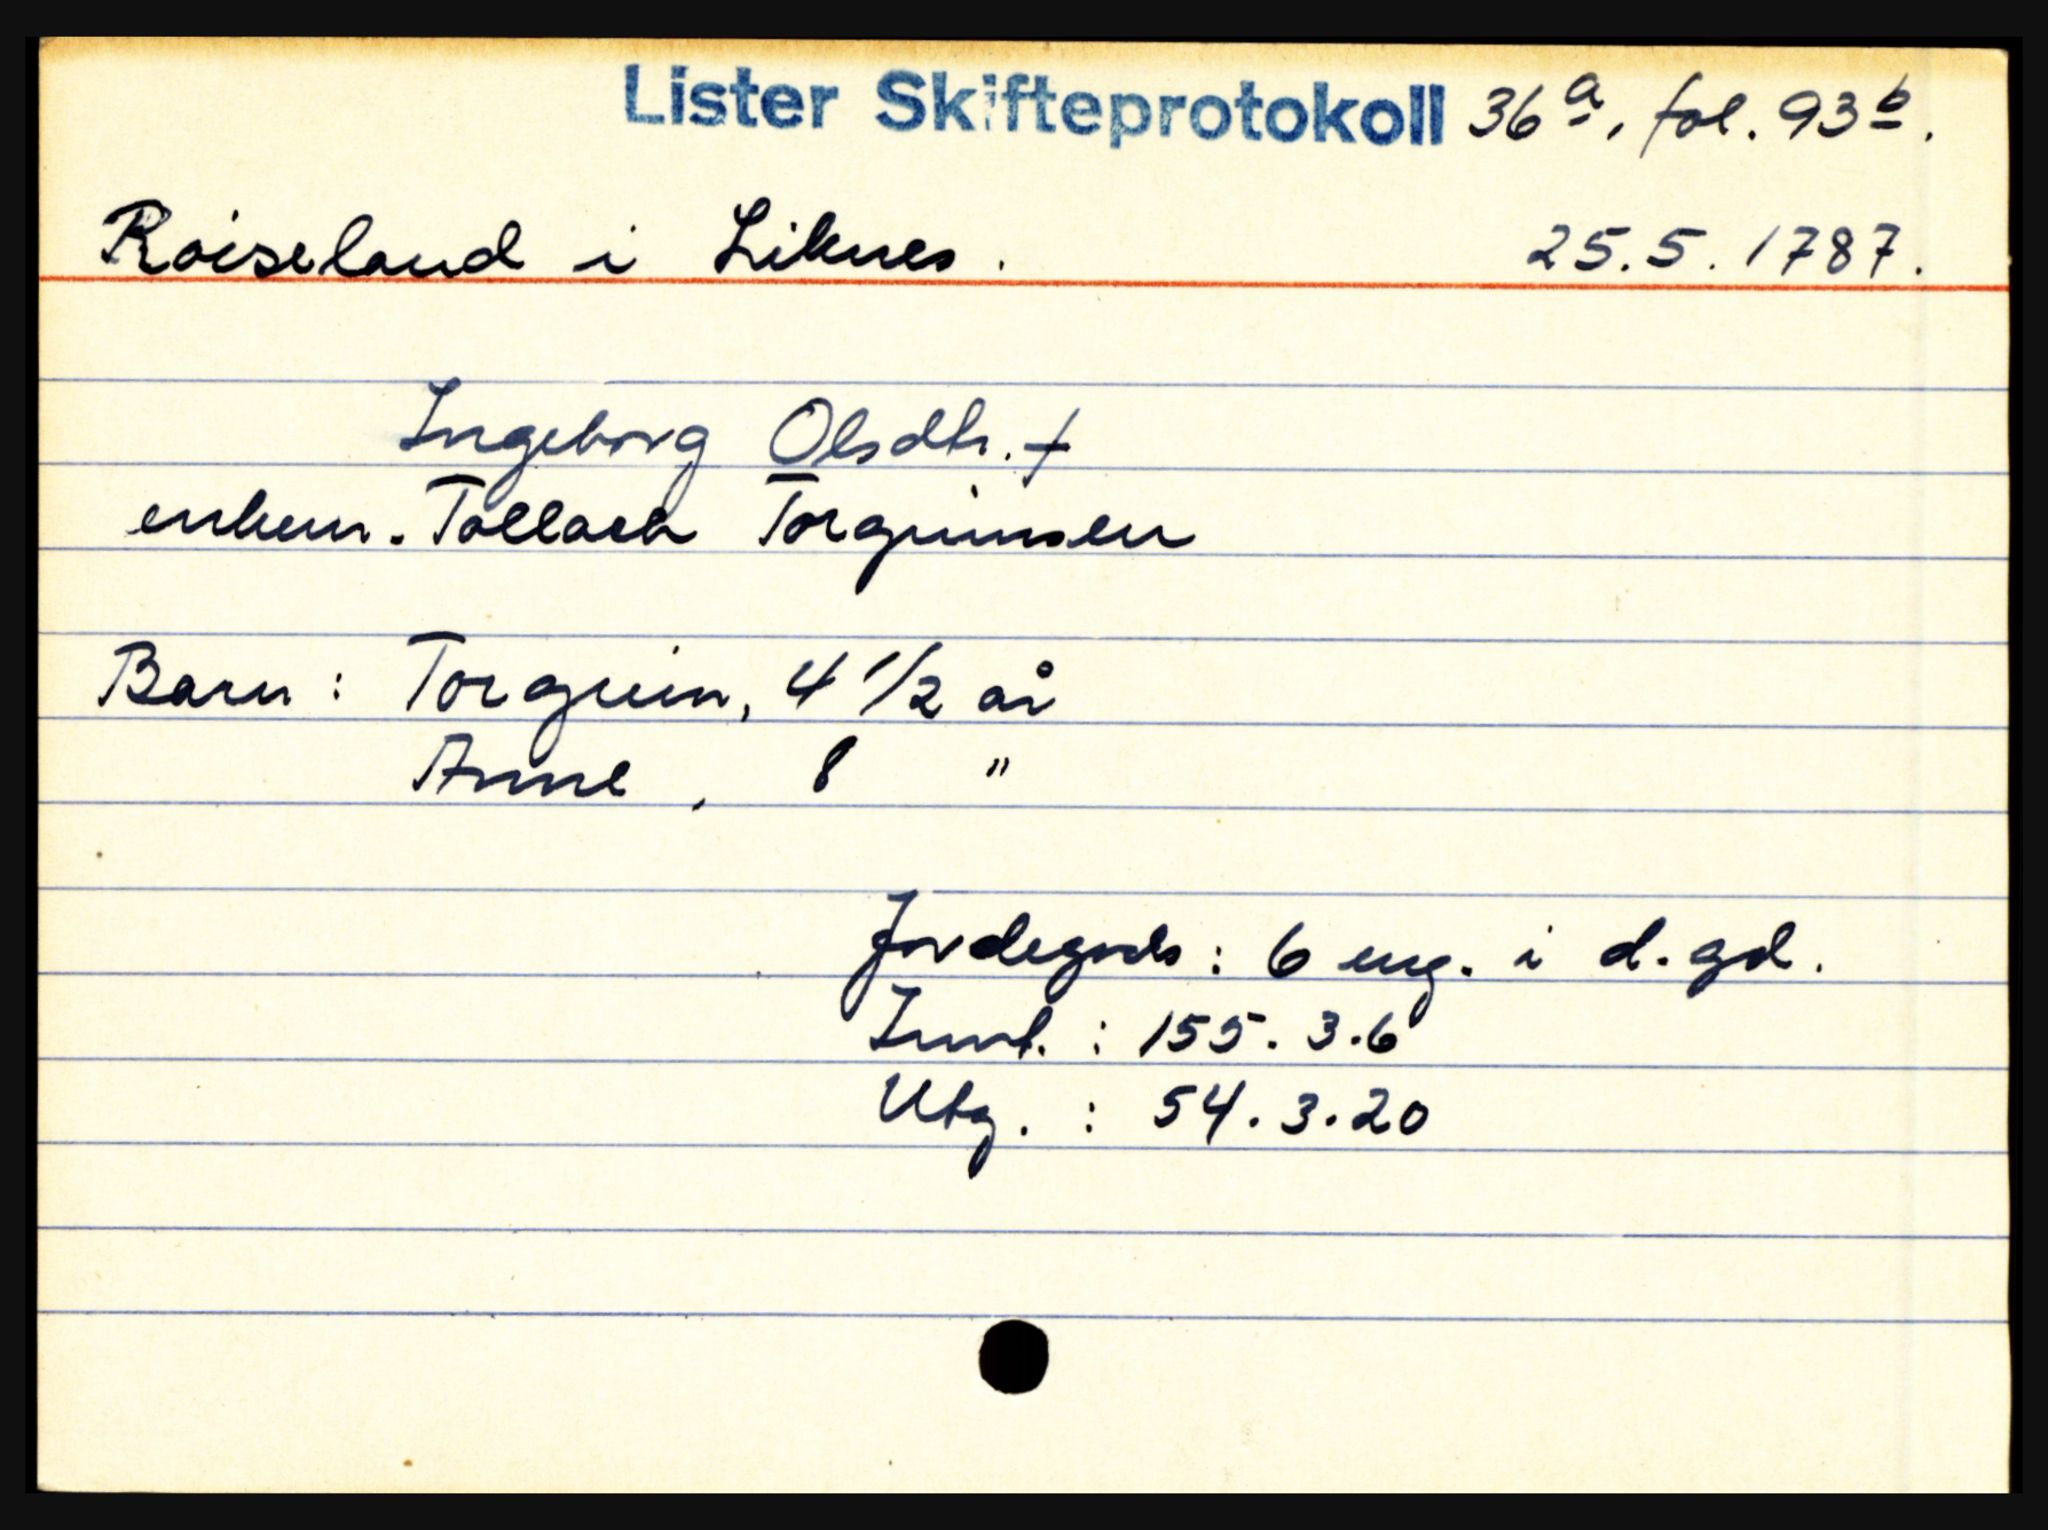 Lister Skifteprotokoll 36a, fol. 93b.
Roiseland i Liknes. 25.5.1787.
Ingeborg Olsdtr. †
enkem. Tollach Torgrimsen
Barn: Torgrim, 4 1/2 år
Anne, 8 "
Jordegods: 6 eng. i d. gd.
Innt. : 155.3.6
Utg. : 54.3.20